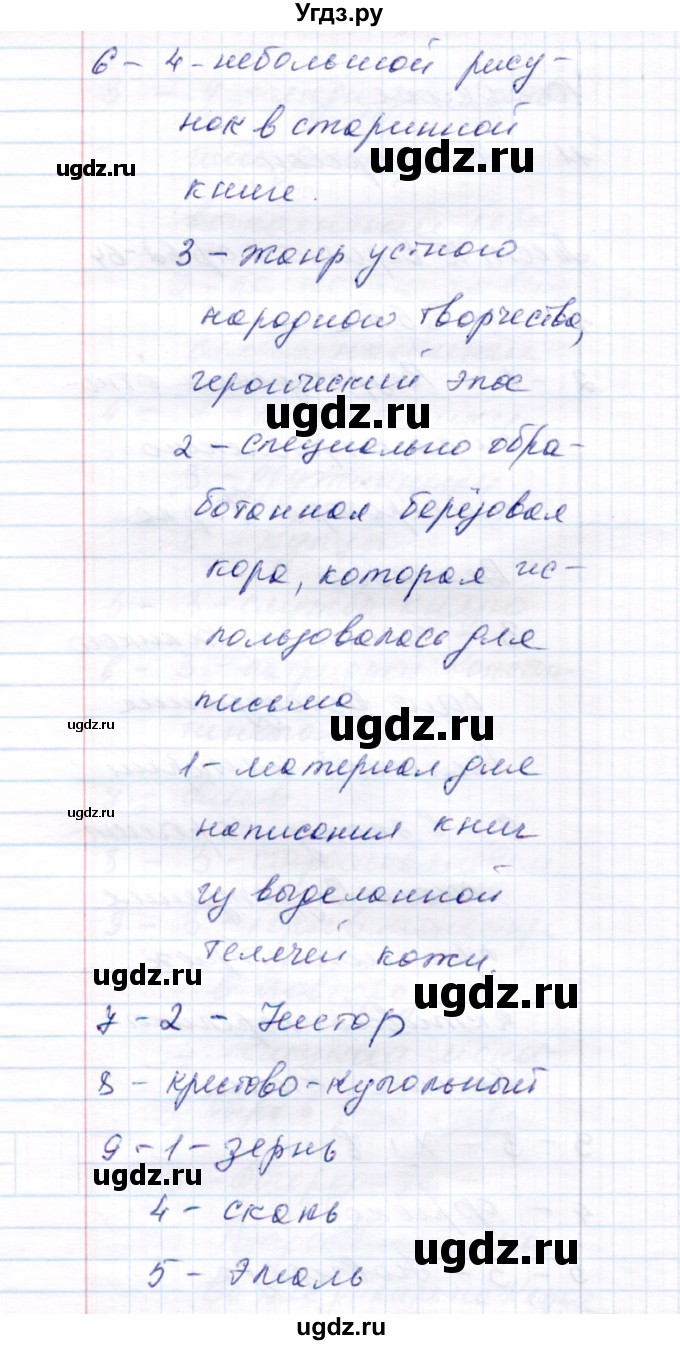 Угдз.ру
6 - 4 - небольшой рису-
нок в старинной
ugdz.ru
ugdz.ru
книге.
3 - жанр устного
народного творчества,
героический эпос
ugdz.ru
2 - специально обра-
ботанная берёзовая
кора, которая ис-
пользовалась для
письма
ugdz.ru
ugdz.ru
1 - материал для
ugdz.ru
написания книг
из выделанной
телячей кожи.
ugdz.ru
ugdz.ru
7 - 2 - Нестор
8 - крестово-купольный
9 - 1 - зернь
ugdz.ru
4 - скань
ugdz.ru
5 - Эмаль
ugdz.ru